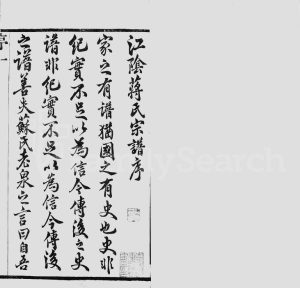 江陰蔣氏宗譜序
家之有譜猶國之有史也史非
紀實不足以為信今傳後之史
譜非紀實不足以為信今傳後
之譜善矣蘇氏老泉之言曰自吾
序一
FamilySearch